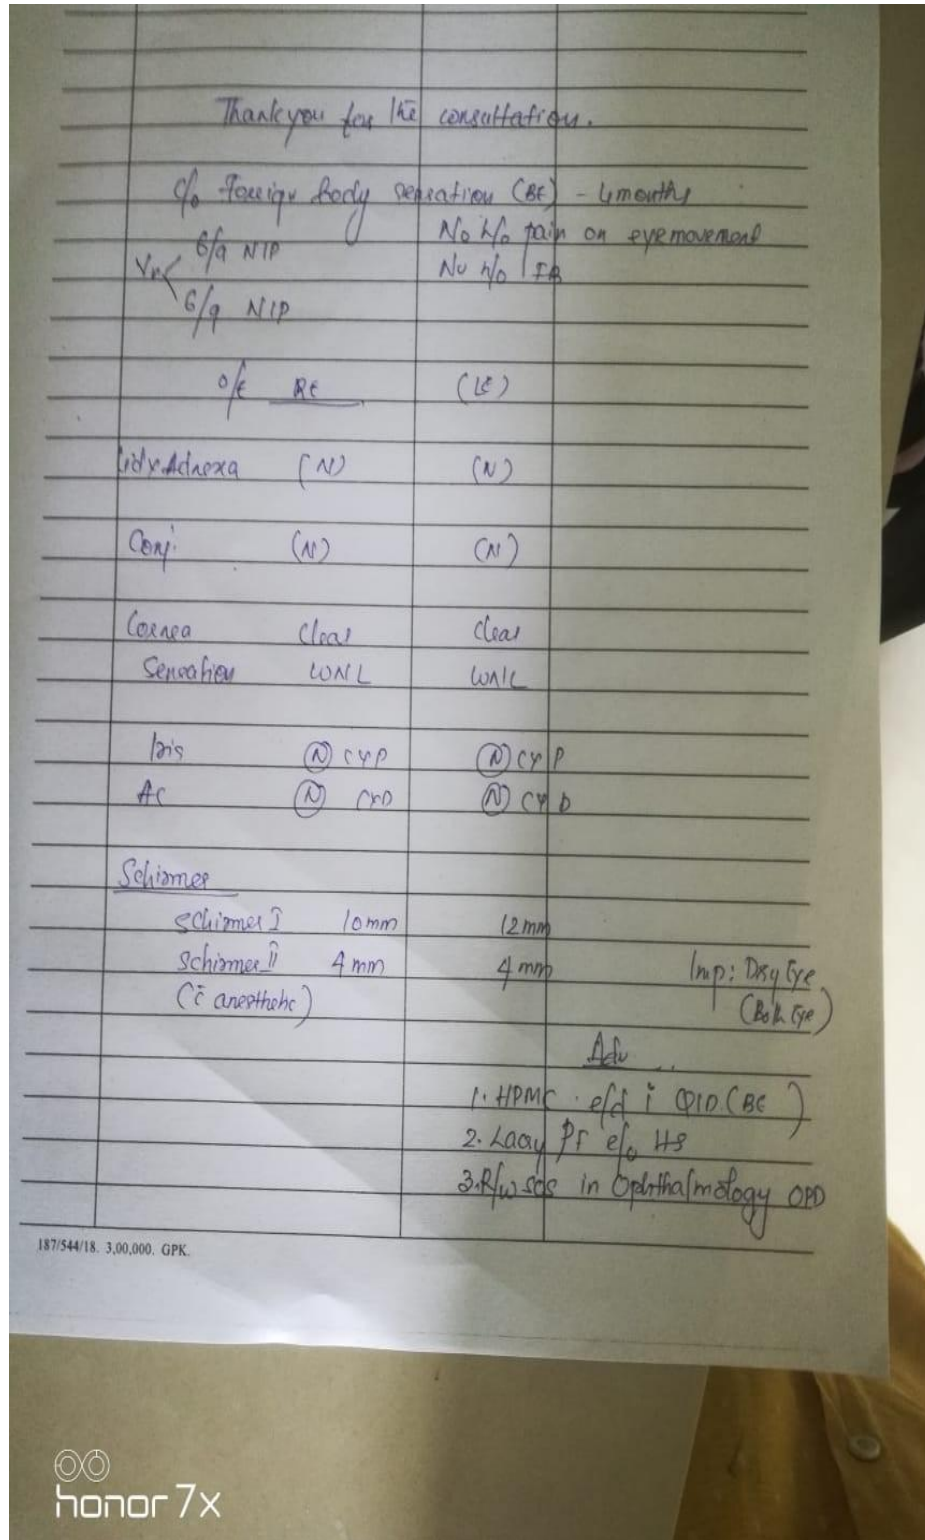 Thank you for the consultation.
c/o Foreign body sensation (BE) - 4 months
No h/o pain on eye movement
Vn 6/9 NIP
No h/o
6/9 NIP
o/e RE (LE)
Lids Adnexa (N) (N)
Conj. (N) (N)
Cornea Clear Clear
Sensation WNL WNL
Iris (N) CYP (N) CYP
AC (N) (N)
Schirmer
Schirmer I 10mm 12mm
Schirmer II 4mm 4mm Imp: Dry Eye
(c̄ anesthetic) (Both Eye)
Adv
1. HPMC e/d i QID (BE)
2. Lacry PF e/o HS
3. R/w SOS in Ophthalmology OPD
187/544/18. 3,00,000. GPK.
honor 7x